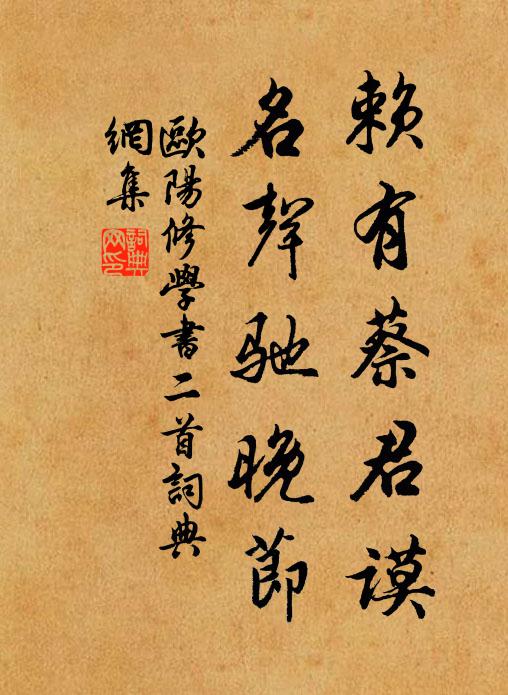 賴有蔡君謨
名聲馳晚節
歐陽修學書二首詞典
網集
詞典網印